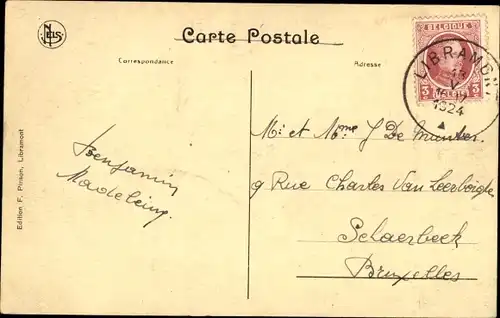 NELS
Carte Postale
Correspondance
Adresse
BELGIQUE
3 BELGIË 3
LIBRAMONT
V
1924
Benjamin
Madeleine
Mr et Mme J De
9 Rue Charles Van
Schaerbeek
Bruxelles
Edition F. Pierson, Libramont